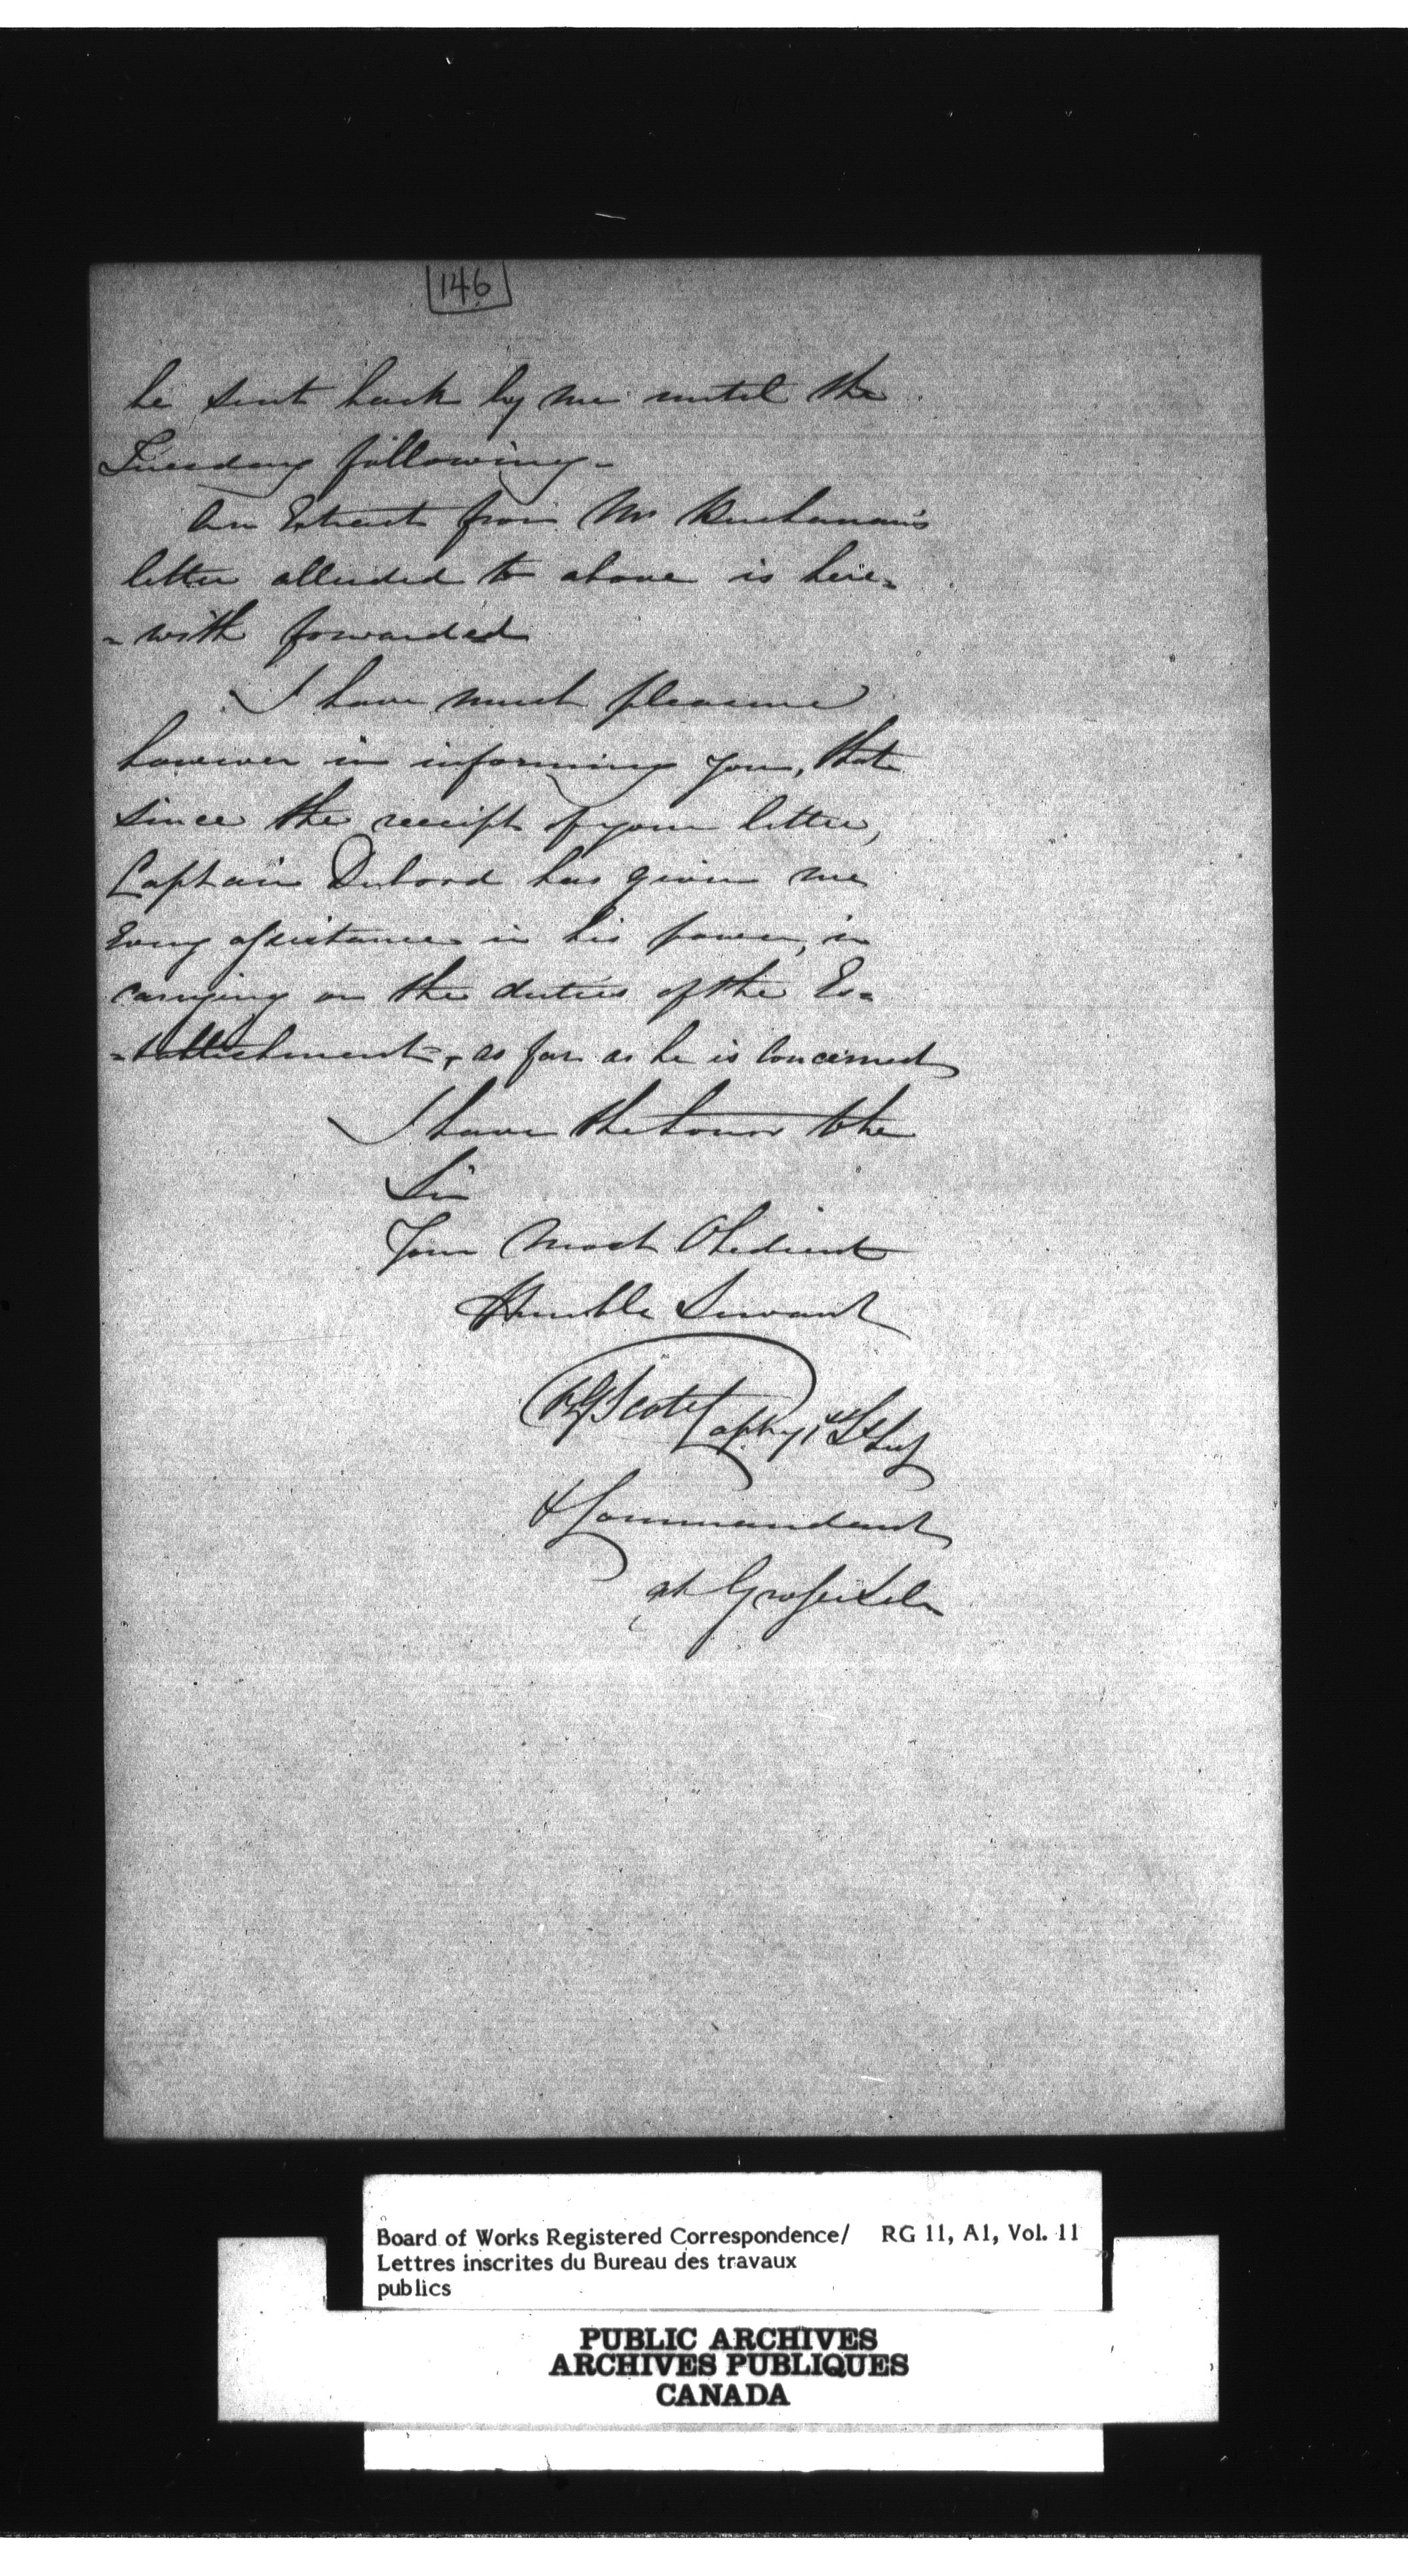 146
be sent back by me until the
Tuesday following-
An Extract from Mr Buchanan's
letter alluded to above is here=
=with forwarded
I have much pleasure
however in informing you, that
since the receipt of your letter,
Captain Dubord has given me
Every assistance in his power, in
carrying on the duties of the Es=
=tablishment, as far as he is Concerned
I have the honor to be
Sir
Your Most Obedient
Humble Servant
Scott Capt
& Commandant
at Grosse Isle
Board of Works Registered Correspondence/ RG 11, A1, Vol. 11
Lettres inscrites du Bureau des travaux
publics
PUBLIC ARCHIVES
ARCHIVES PUBLIQUES
CANADA